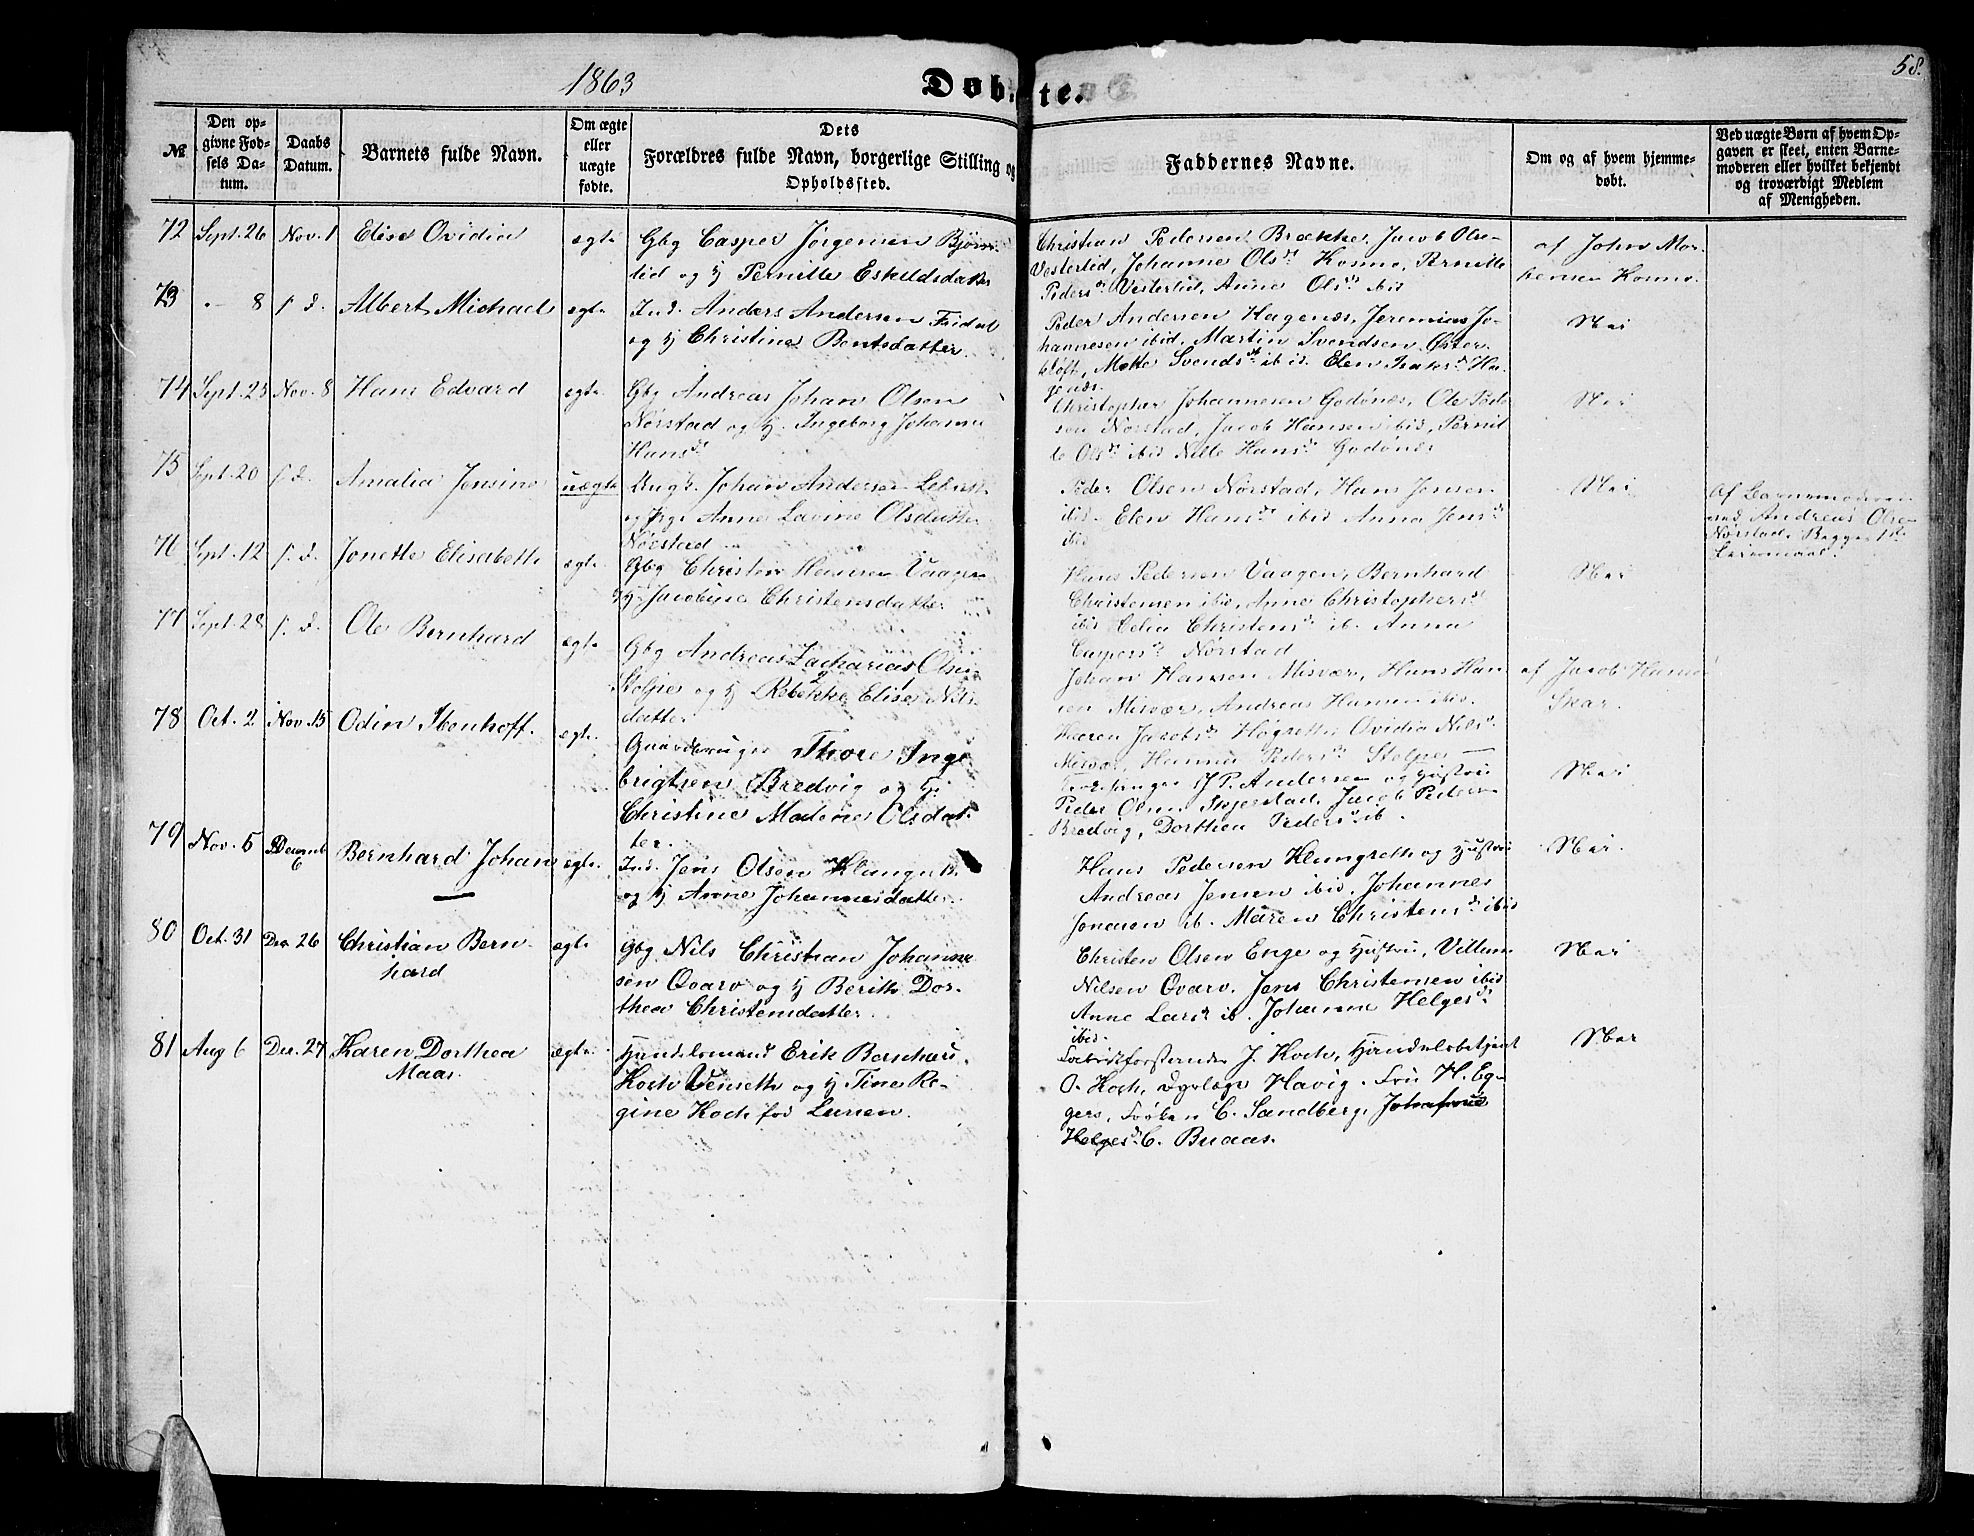 1863
Døbte.
58.
№
Den op-
givne Fød-
sels Da-
tum.
Daabs
Datum.
Barnets fulde Navn.
Om ægte
eller
uægte
fødte.
Dets
Forældres fulde Navn, borgerlige Stilling og
Opholdssted.
Faddernes Navne.
Om og af hvem hjemme-
døbt.
Ved uægte Børn af hvem Op-
gaven er skeet, enten Barne-
moderen eller hvilket bekjendt
og troværdigt Medlem
af Menigheden.
72 Sept. 26 Nov. 1 Elise Ovidia ægte
Gbg Casper Jörgensen
lid og H Pernille Eskildsdatter
Christian Pedersen Brække, Jacob Olsen
Vesterlid, Johanne Olsdr Kosmo, Pernille
Pedersdr Vesterlid, Anne Olsdr ibid
af John Mor-
tensen Kosmo.
73 " 8 s. d. Albert Michael ægte
Ind. Anders Andersen
og H Christine Bentsdatter.
Peder Andersen Hagenæs, Jeremias Jo-
hannesen ibid, Martin Svendsen Øster-
kløft, Svendsdr ibid. Elen Isaksdr Ha-
genæs.
Nei
74 Sept. 25 Nov. 8 Hans Edvard ægte
Gbg Andreas Johan Olsen
Nørstad og H. Ingeborg Johanne
Hansdr
Christopher Johannesen Godønæs, Ole Peder-
sen Nørstad, Jacob Hansen ibid, Pernil-
le Olsdr ibid Nille Hansdr Godønæs
Nei
75 Sept. 20 s. d. Amalia Jensine uægte
Ungk. Johan Andersen
og Pige Anne Lavine Olsdatter
Nørstad
Peder Olsen Nørstad, Hans Jensen
ibid. Elen Hansdr ibid Anna Jensdr
ibid
Nei
Af Barnemoderen
Andreas Olsen
Nørstad.
76 Sept. 12 s. d. Jonette Elisabeth ægte
Gbg Christen Hansen Vaagen
H Jacobine Christensdatter
Hans Pedersen Vaagen, Bernhard
Christensen ibid, Anne Christophersdr
ibid Celia Christensdr ib. Anna
Caspersdr Nørstad
Nei
77 Sept. 28 s. d. Ole Bernhard ægte
Gbg Andreas Zacharias Olsen
Stolpe og H Rebekka Elise Nils-
datter
Johan Hansen Misvær, Hans Han-
sen Misvær, Andreas Hansen ibid.
Karen Jacobsdr Høgsette Ovidia Nilsdr
Misvær, Hanna Pedersdr Stolpe
af Jacob Hansen
Skar.
78 Oct. 2 Nov. 15 Odin Stenhoff. ægte.
Gaardbruger Thore Inge-
brigtsen Bredvig og H.
Christine Madene Olsdat-
ter.
J. P. Andersen og Hustru
Peder Olsen Skjerstad, Jacob Pedersen
Bredvig, Dorthea Pedersdr ib.
Nei
79 Nov. 5 Decemb 6 Bernhard Johan ægte.
Ind. Jens Olsen Klungset
og H Anne Johannesdatter.
Hans Pedersen Klungseth og Hustru
Andreas Jensen ibid, Johannes
Jonasen ib. Maren Christensdr ibid
Nei.
80 Oct. 31 Dec. 26 Christian Bern-
hard ægte
Gbg Nils Christian Johanne-
sen Qvarv og H Berith Dor-
thea Christensdatter.
Christen Olsen Enge og Hustru, Villum
Nilsen Qvarv, Jens Christensen ibid
Anne Larsdr ib. Johanna Helgesdr
ibid
Nei
81 Aug 6 Dec. 27 Karen Dorthea
Maas. ægte.
Handelsmand Erik Bernhard
Koch Venseth og H Tine Re-
gine Koch fød Lunen.
J. Koch, Handelsbetjent
O. Koch, Dyrlæge Havig. Fru H. Eg-
gers, Frøken C. Sandberg, Johanne
Helgesdr C. Buaas.
Nei